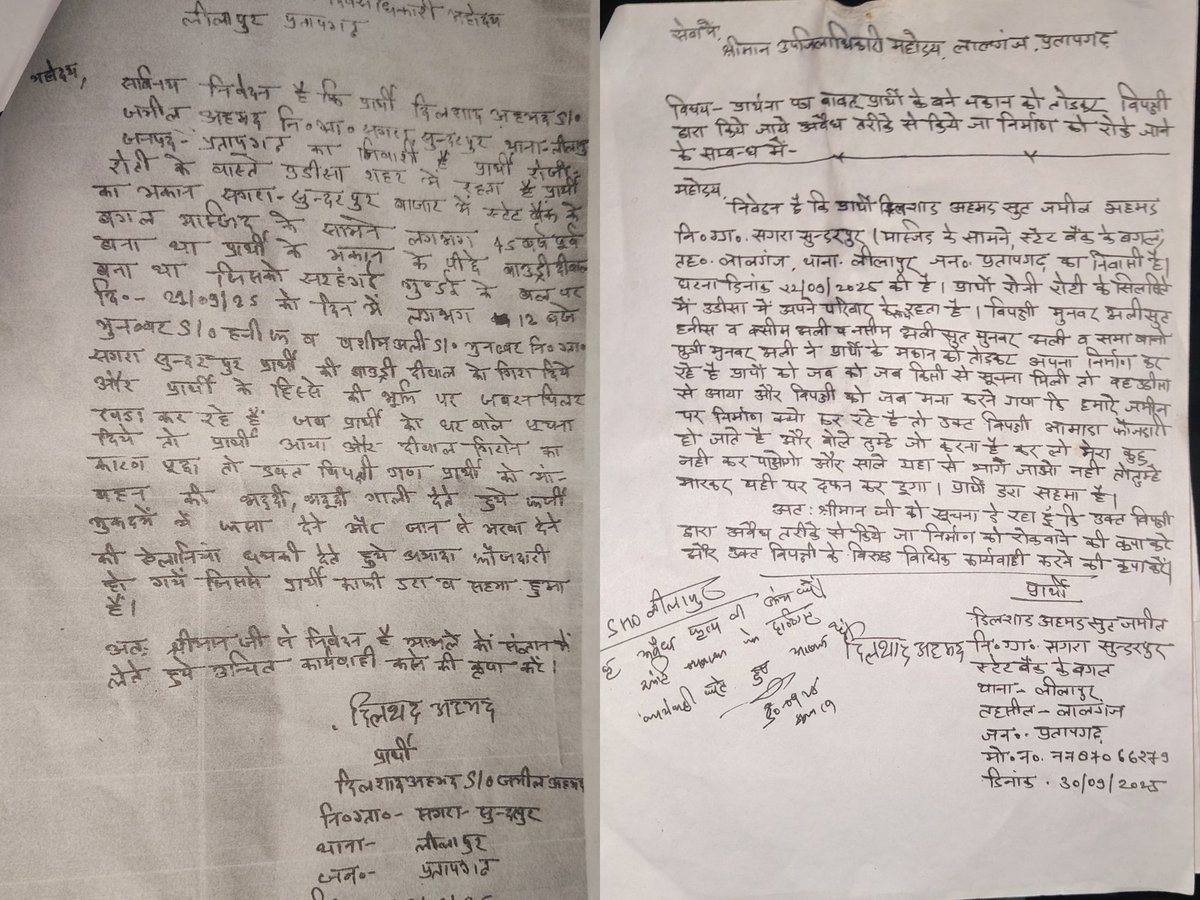 लीलापुर प्रतापगढ़
महोदय,
सविनय निवेदन है कि प्रार्थी दिलशाद अहमद S/०
जमील अहमद नि०ग्रा० सगरा सुन्दरपुर थाना-लीलापुर
जनपद- प्रतापगढ़ का निवासी है प्रार्थी रोजी-
रोटी के वास्ते उडीसा शहर में रहता है प्रार्थी
का मकान सगरा-सुन्दरपुर बाजार में स्टेट बैंक के
बगल मस्जिद के सामने लगभग 45 वर्ष पूर्व
बना था प्रार्थी के मकान के पीछे बाउड्री दीवाल
बना था जिसको सरहंगई गुण्डई के बल पर
दि०- 22/09/25 को दिन में लगभग 12 बजे
मुनव्वर S/० हनीफ व वशीम अली S/० मुनव्वर नि०ग्रा०
सगरा सुन्दरपुर प्रार्थी की बाउड्री दीवाल को गिरा दिये
और प्रार्थी के हिस्से की भूमि पर जबरन पिलर
खडा कर रहे हैं जब प्रार्थी को घर वाले सूचना
दिये तो प्रार्थी आया और दीवाल गिराने का
कारण पूछा तो उक्त विपक्षी गण प्रार्थी को मां-
बहन की भद्दी, भद्दी गाली देते हुये फर्जी
मुकदमें में फसा देने और जान से मरवा देने
की धमकी देते हुये अमादा फौजदारी
हो गये जिससे प्रार्थी काफी डरा व सहमा हुआ
है।
अतः श्रीमान जी से निवेदन है मामले को संज्ञान में
लेते हुये उचित कार्यवाही करने की कृपा करें।
दिलशाद अहमद
प्रार्थी
दिलशाद अहमद S/० जमील अहमद
नि०ग्रा०- सगरा- सुन्दरपुर
थाना- लीलापुर
जन०- प्रतापगढ़
सेवा में,
श्रीमान उपजिलाधिकारी महोदय, लालगंज, प्रतापगढ़
विषय- प्रार्थना पत्र बावत् प्रार्थी के बने मकान को तोडकर विपक्षी
द्वारा किये जाये अवैध तरीके से किये जा निर्माण को रोके जाने
के सम्बन्ध में-
महोदय,
निवेदन है कि प्रार्थी दिलशाड अहमड सुत जमील अहमड
नि०ग्रा०. सगरा सुन्डरपुर (मस्जिड के सामने, स्टेट बैंक के बगल)
तह०. लालगंज, थाना. लीलापुर जन०. प्रतापगढ़ का निवासी है।
घटना दिनांक 22/09/2025 की है। प्रार्थी रोजी रोटी के सिलसिले
में उडीसा में अपने परिवार के रहता है। विपक्षी मुनवर अली सुत
हनीस व वसीम अली व नसीम अली सुत मुनवर अली व समा बानो
पुत्री मुनवर अली ने प्रार्थी के मकान को तोडकर अपना निर्माण कर
रहे है प्रार्थी को जब को जब किसी से सूचना मिली तो वह उडीसा
से आया और विपक्षी को जब मना करने गया कि हमारे जमीन
पर निर्माण क्यो कर रहे है तो उक्त विपक्षी आमाडा फौजडारी
हो जाते है और बोले तुम्हे जो करना है कर लो मेरा कुछ
नही कर पाओगे और साले यहा से भाग जाओ नही तो तुम्हे
मारकर यही पर दफन कर डूगा। प्रार्थी डरा सहमा है।
अतः श्रीमान जी को सूचना डे रहा हूँ कि उक्त विपक्षी
द्वारा अवैध तरीके से किये जा निर्माण को रोकवाने की कृपा करे
और उक्त विपक्षी के विरुद्ध विधिक कार्यवाही करने की कृपा करें।
SHO लीलापुर
दिलशाद अहमद
30.09.25
प्रार्थी
डिलशाड अहमड सुत जमील
नि०ग्रा०. सगरा सुन्डरपुर
स्टेट बैंक के बगल
थाना- लीलापुर
तहसील- लालगंज
जन०. प्रतापगढ़
डिनांक. 30/09/2025